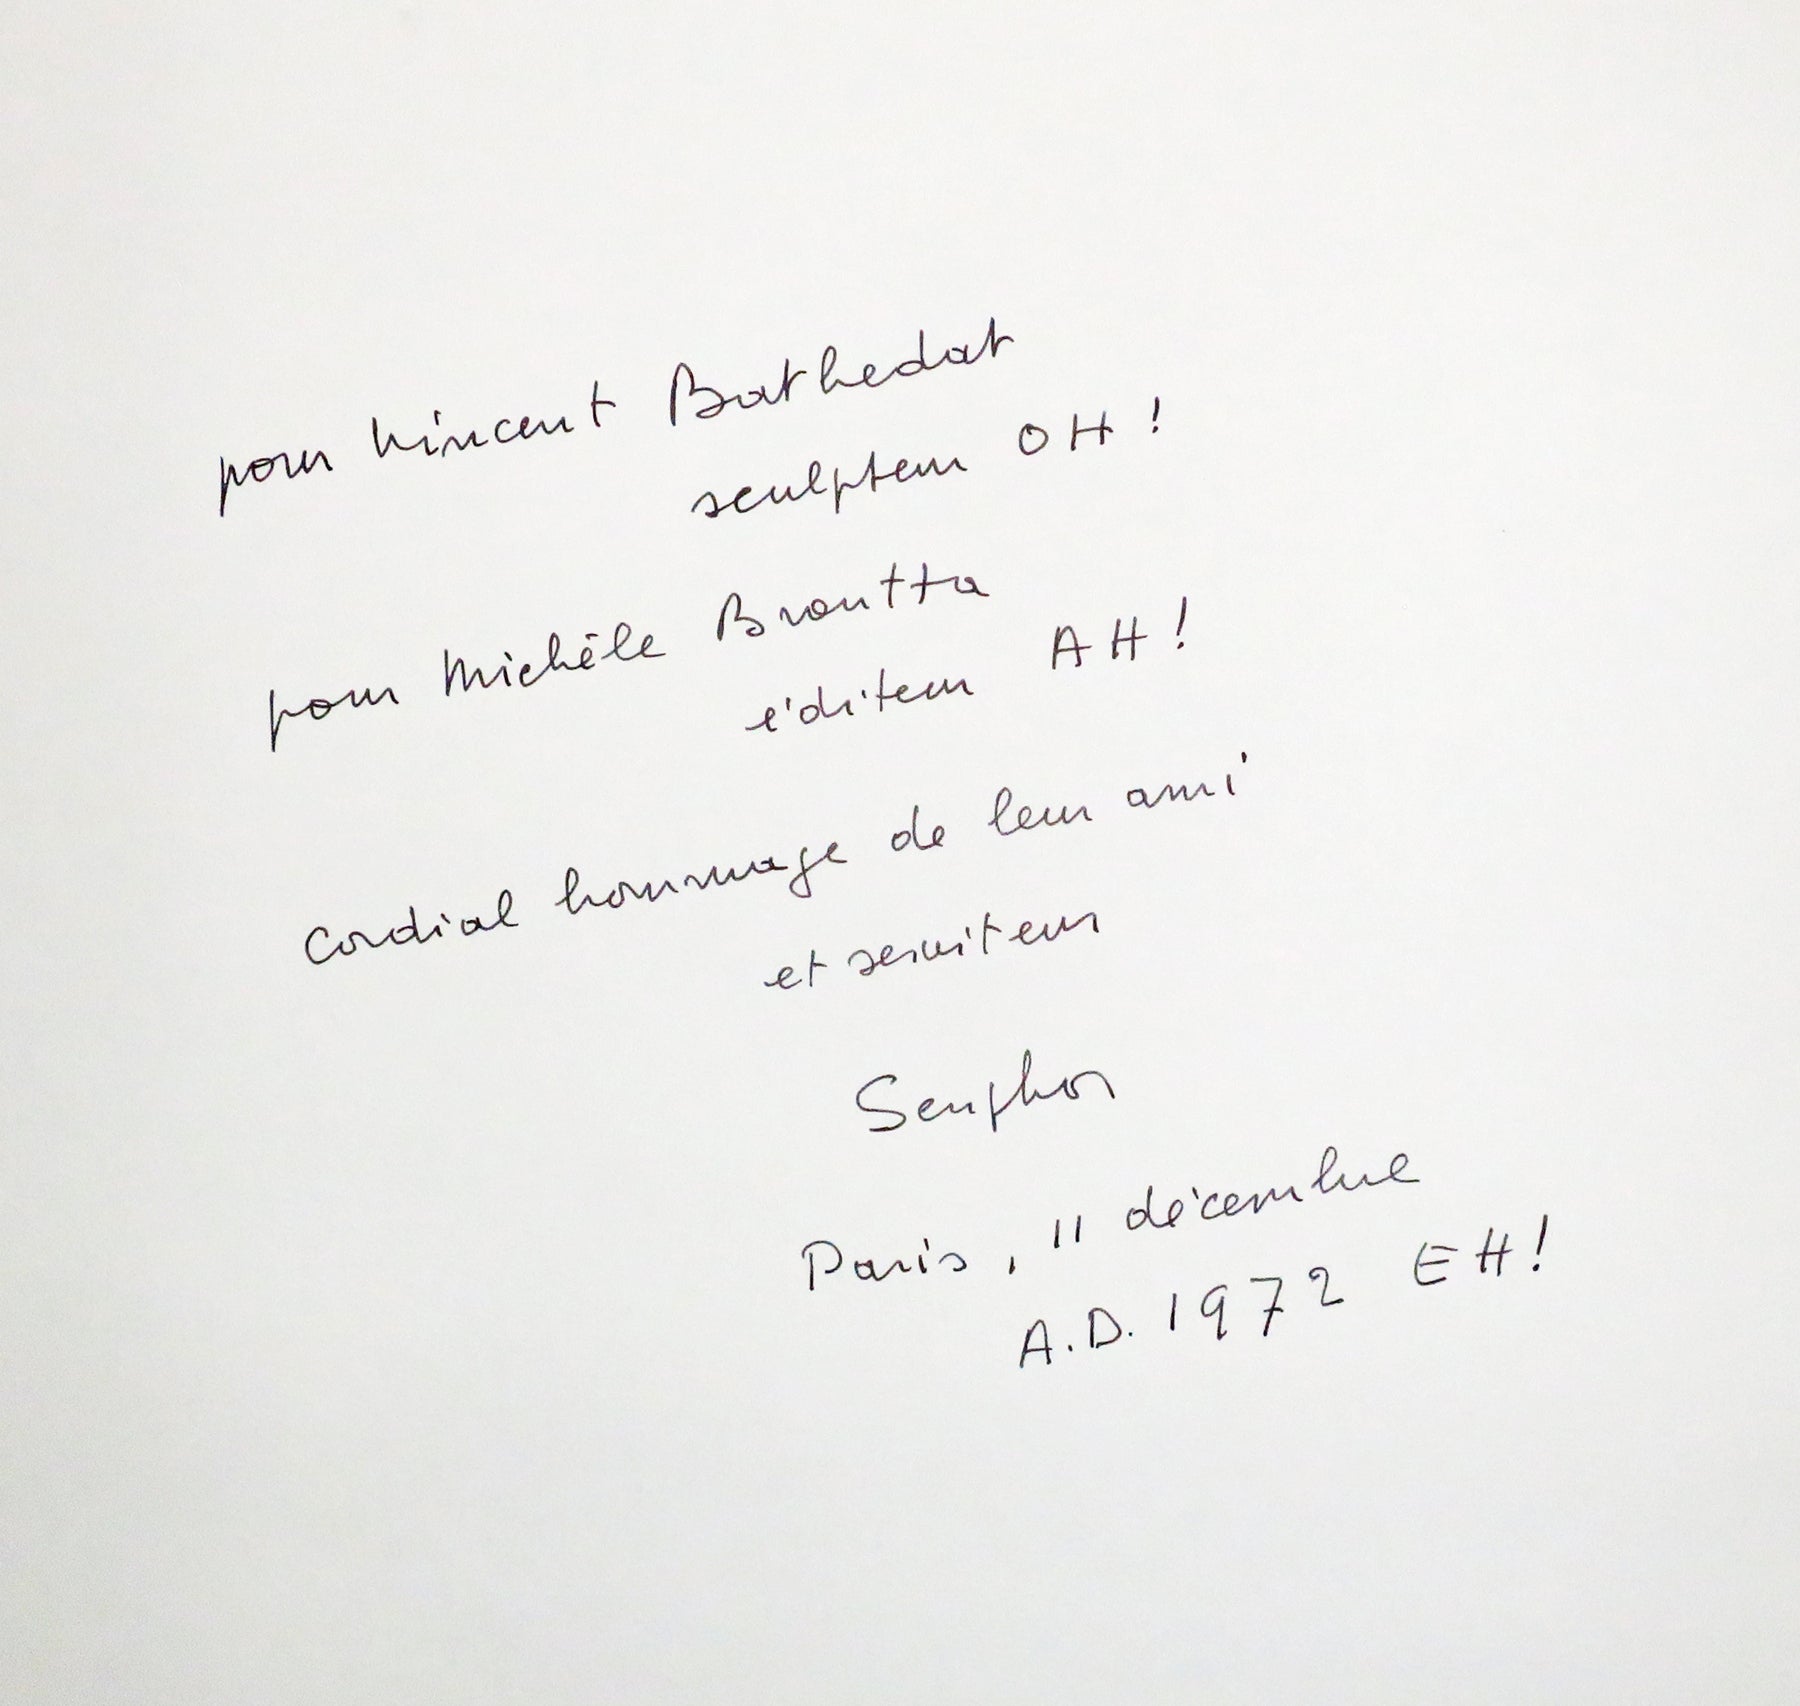 pour Vincent Bathedat
sculpteur OH!
pour Michèle Broutta
éditeur AH!
Cordial hommage de leur ami
et serviteur
Seuphor
Paris, 11 décembre
A.D. 1972 EH!